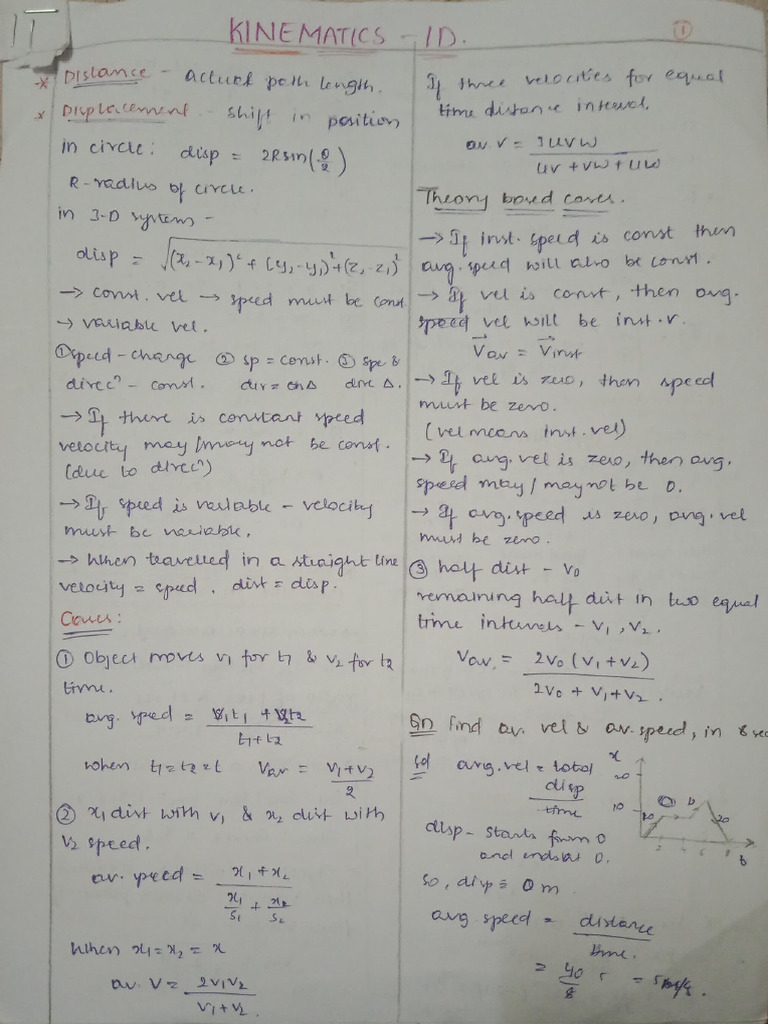 IT
KINEMATICS - 1D.
1
* Distance - actual path length.
* Displacement - shift in position
in circle: disp = 2Rsin(θ/2)
R-radius of circle.
in 3-D system -
disp = √(x₂-x₁)² + (y₂-y₁)² + (z₂-z₁)²
→ const. vel → speed must be const
→ variable vel.
① speed - change ② sp = const. ③ spe &
direcⁿ - const. dir = chΔ dirc Δ.
→ If there is constant speed
velocity may/may not be const.
(due to direcⁿ)
→ If speed is variable - velocity
must be variable.
→ When travelled in a straight line
velocity = speed. dist = disp.
Cases:
① Object moves v₁ for t₁ & v₂ for t₂
time.
avg. speed = v₁t₁ + v₂t₂ / t₁+t₂
when t₁=t₂=t Vav = v₁+v₂ / 2
② x₁ dist with v₁ & x₂ dist with
v₂ speed.
av. speed = x₁+x₂ / x₁/s₁ + x₂/s₂
When x₁=x₂=x
av. V = 2v₁v₂ / v₁+v₂.
If three velocities for equal
time distance interval.
av. v = 3uvw / uv+vw+uw
Theory based cases.
→ If inst. speed is const then
avg. speed will also be const.
→ If vel is const, then avg.
speed vel will be inst. v.
V⃗av = V⃗inst
→ If vel is zero, then speed
must be zero.
(vel means inst. vel)
→ If avg. vel is zero, then avg.
speed may/may not be 0.
→ If avg. speed is zero, avg. vel
must be zero.
③ half dist - v₀
remaining half dist in two equal
time intervals - v₁, v₂.
Vav. = 2v₀(v₁+v₂) / 2v₀+v₁+v₂.
Qn find av. vel & av. speed, in 8 sec
sol avg. vel = total disp / time
x
20
10
10
20
2 4 6 8 t
disp - starts from 0
and ends at 0.
so, disp = 0 m
avg speed = distance / time.
= 40 / 8 = 5m/s.